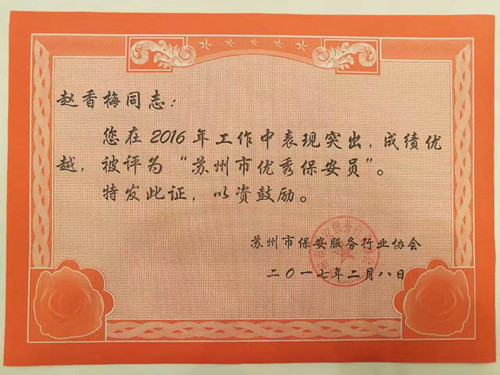 赵香梅同志：
您在2016年工作中表现突出，成绩优
越，被评为“苏州市优秀保安员”。
特发此证，以资鼓励。
苏州市保安服务行业协会
二〇一七年二月八日